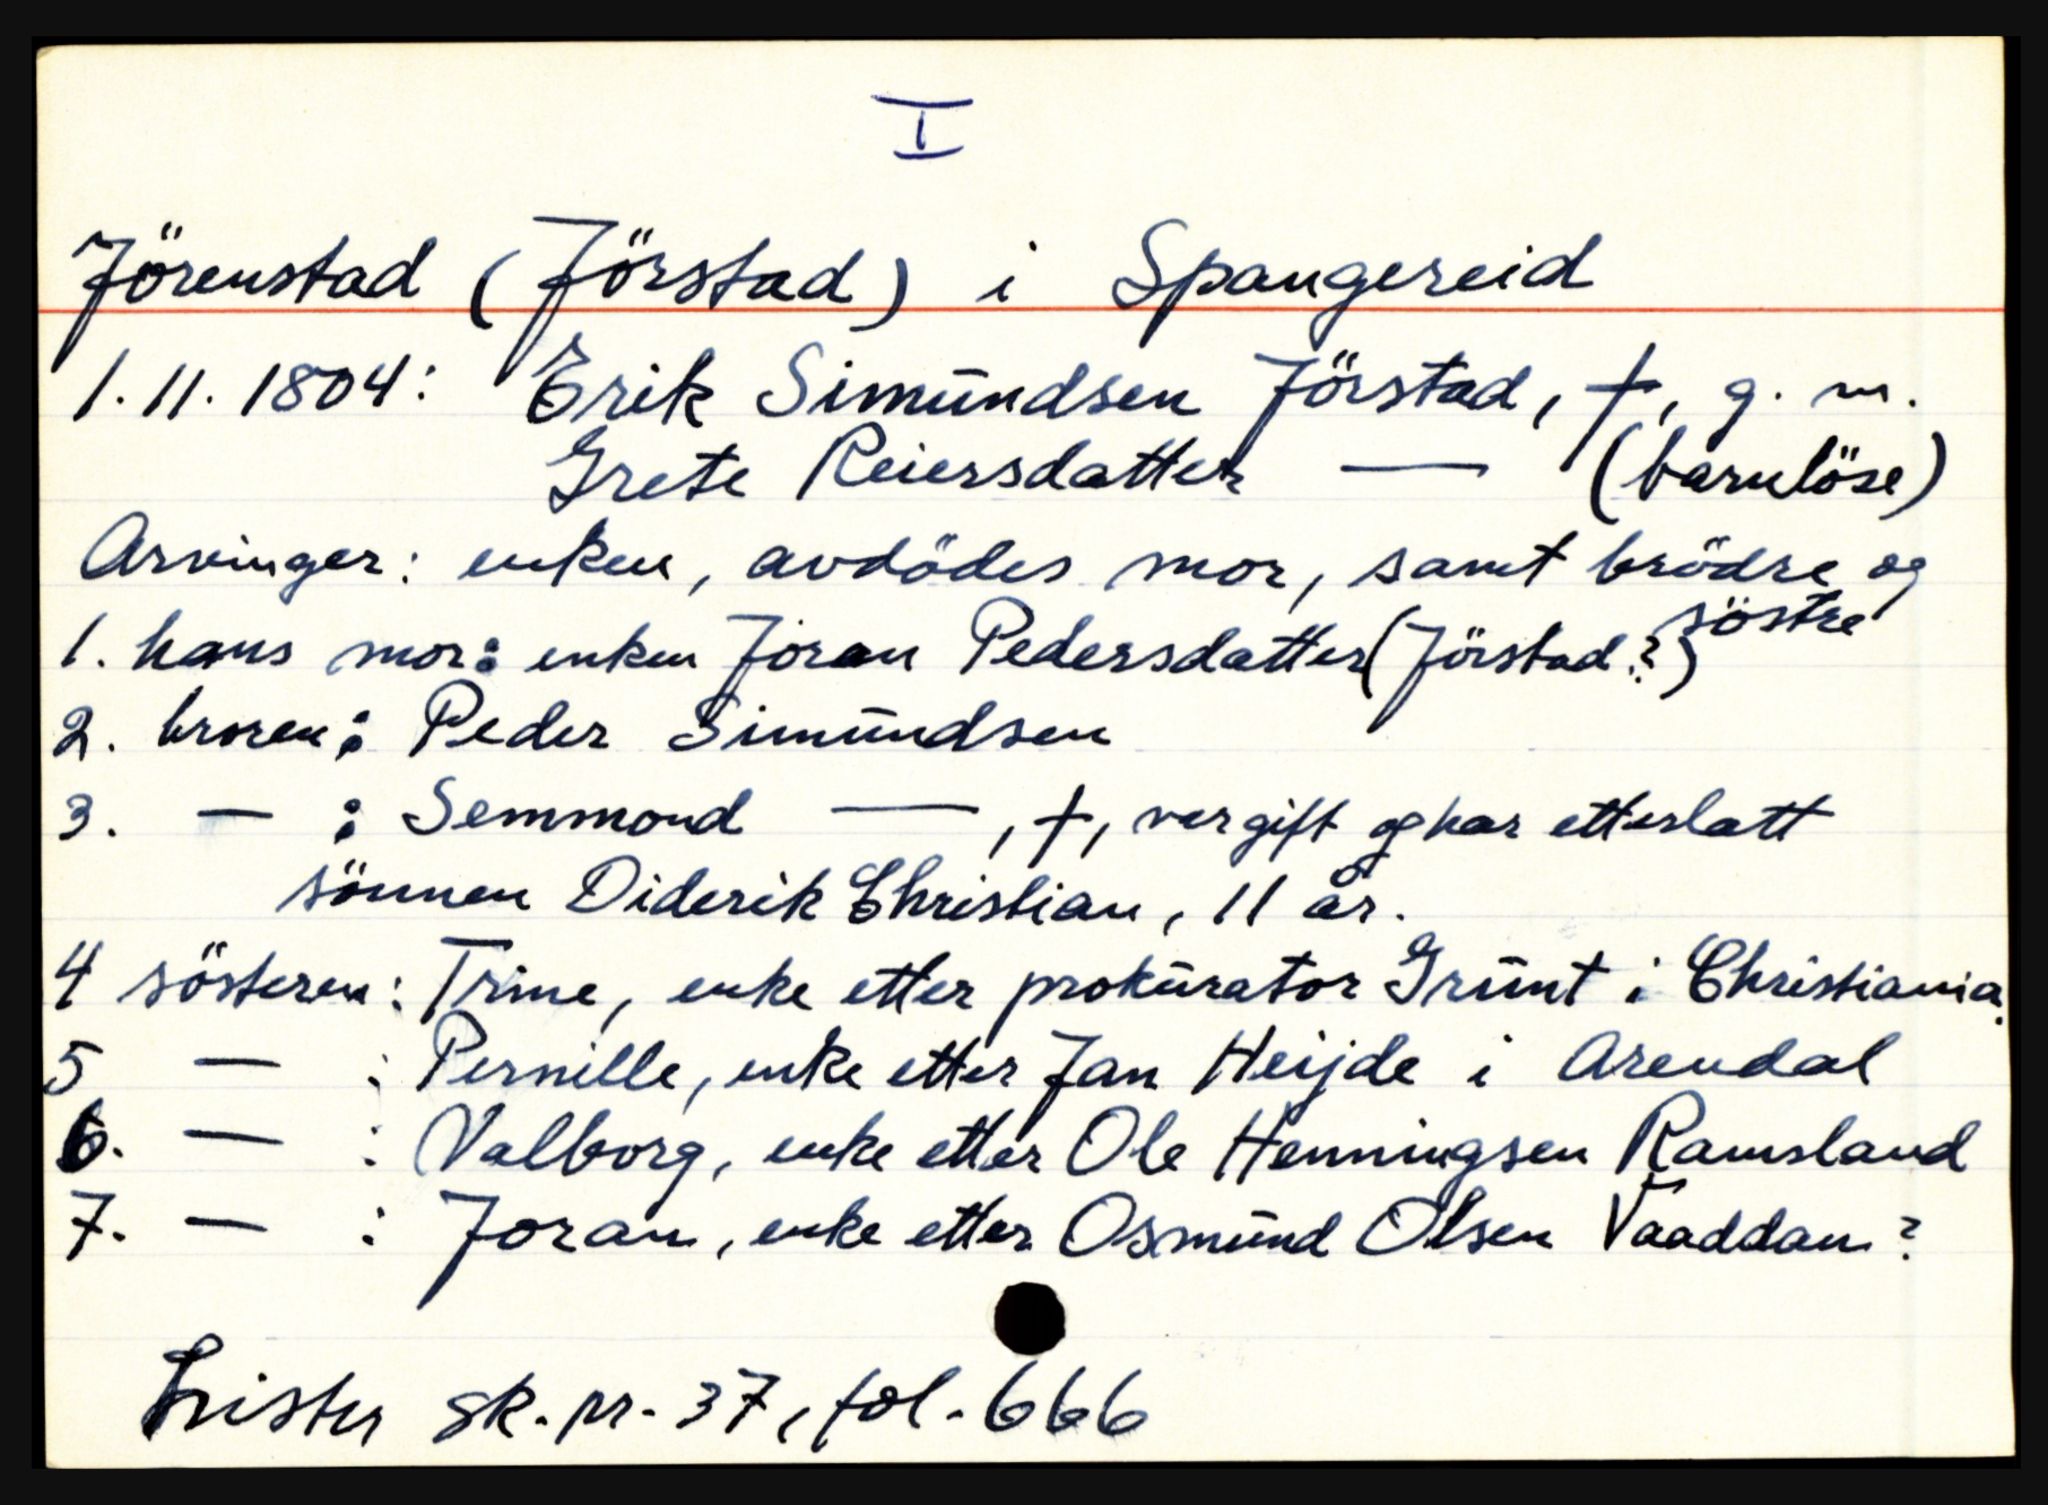 I
Jörenstad (Jörstad) i Spangereid
1.11.1804: Erik Simundsen Jörstad, †, g. m.
Grete Reiersdatter — (barnlöse)
Arvinger: enken, avdödes mor, samt brödre og
söstre
1. hans mor: enken Joran Pedersdatter (Jörstad?)
2. broren: Peder Simundsen
3. — : Semmond —, †, var gift og har etterlatt
sönnen Diderik Christian, 11 år.
4 sösteren: Trine, enke etter prokurator Grunt i Christiania.
5 — : Pernille, enke etter Jan Heijde i Arendal
6. — : Valborg, enke etter Ole Henningsen Ramsland
7. — : Joran, enke etter Osmund Olsen Vaaddan?
Lister sk. pr. 37, fol. 666